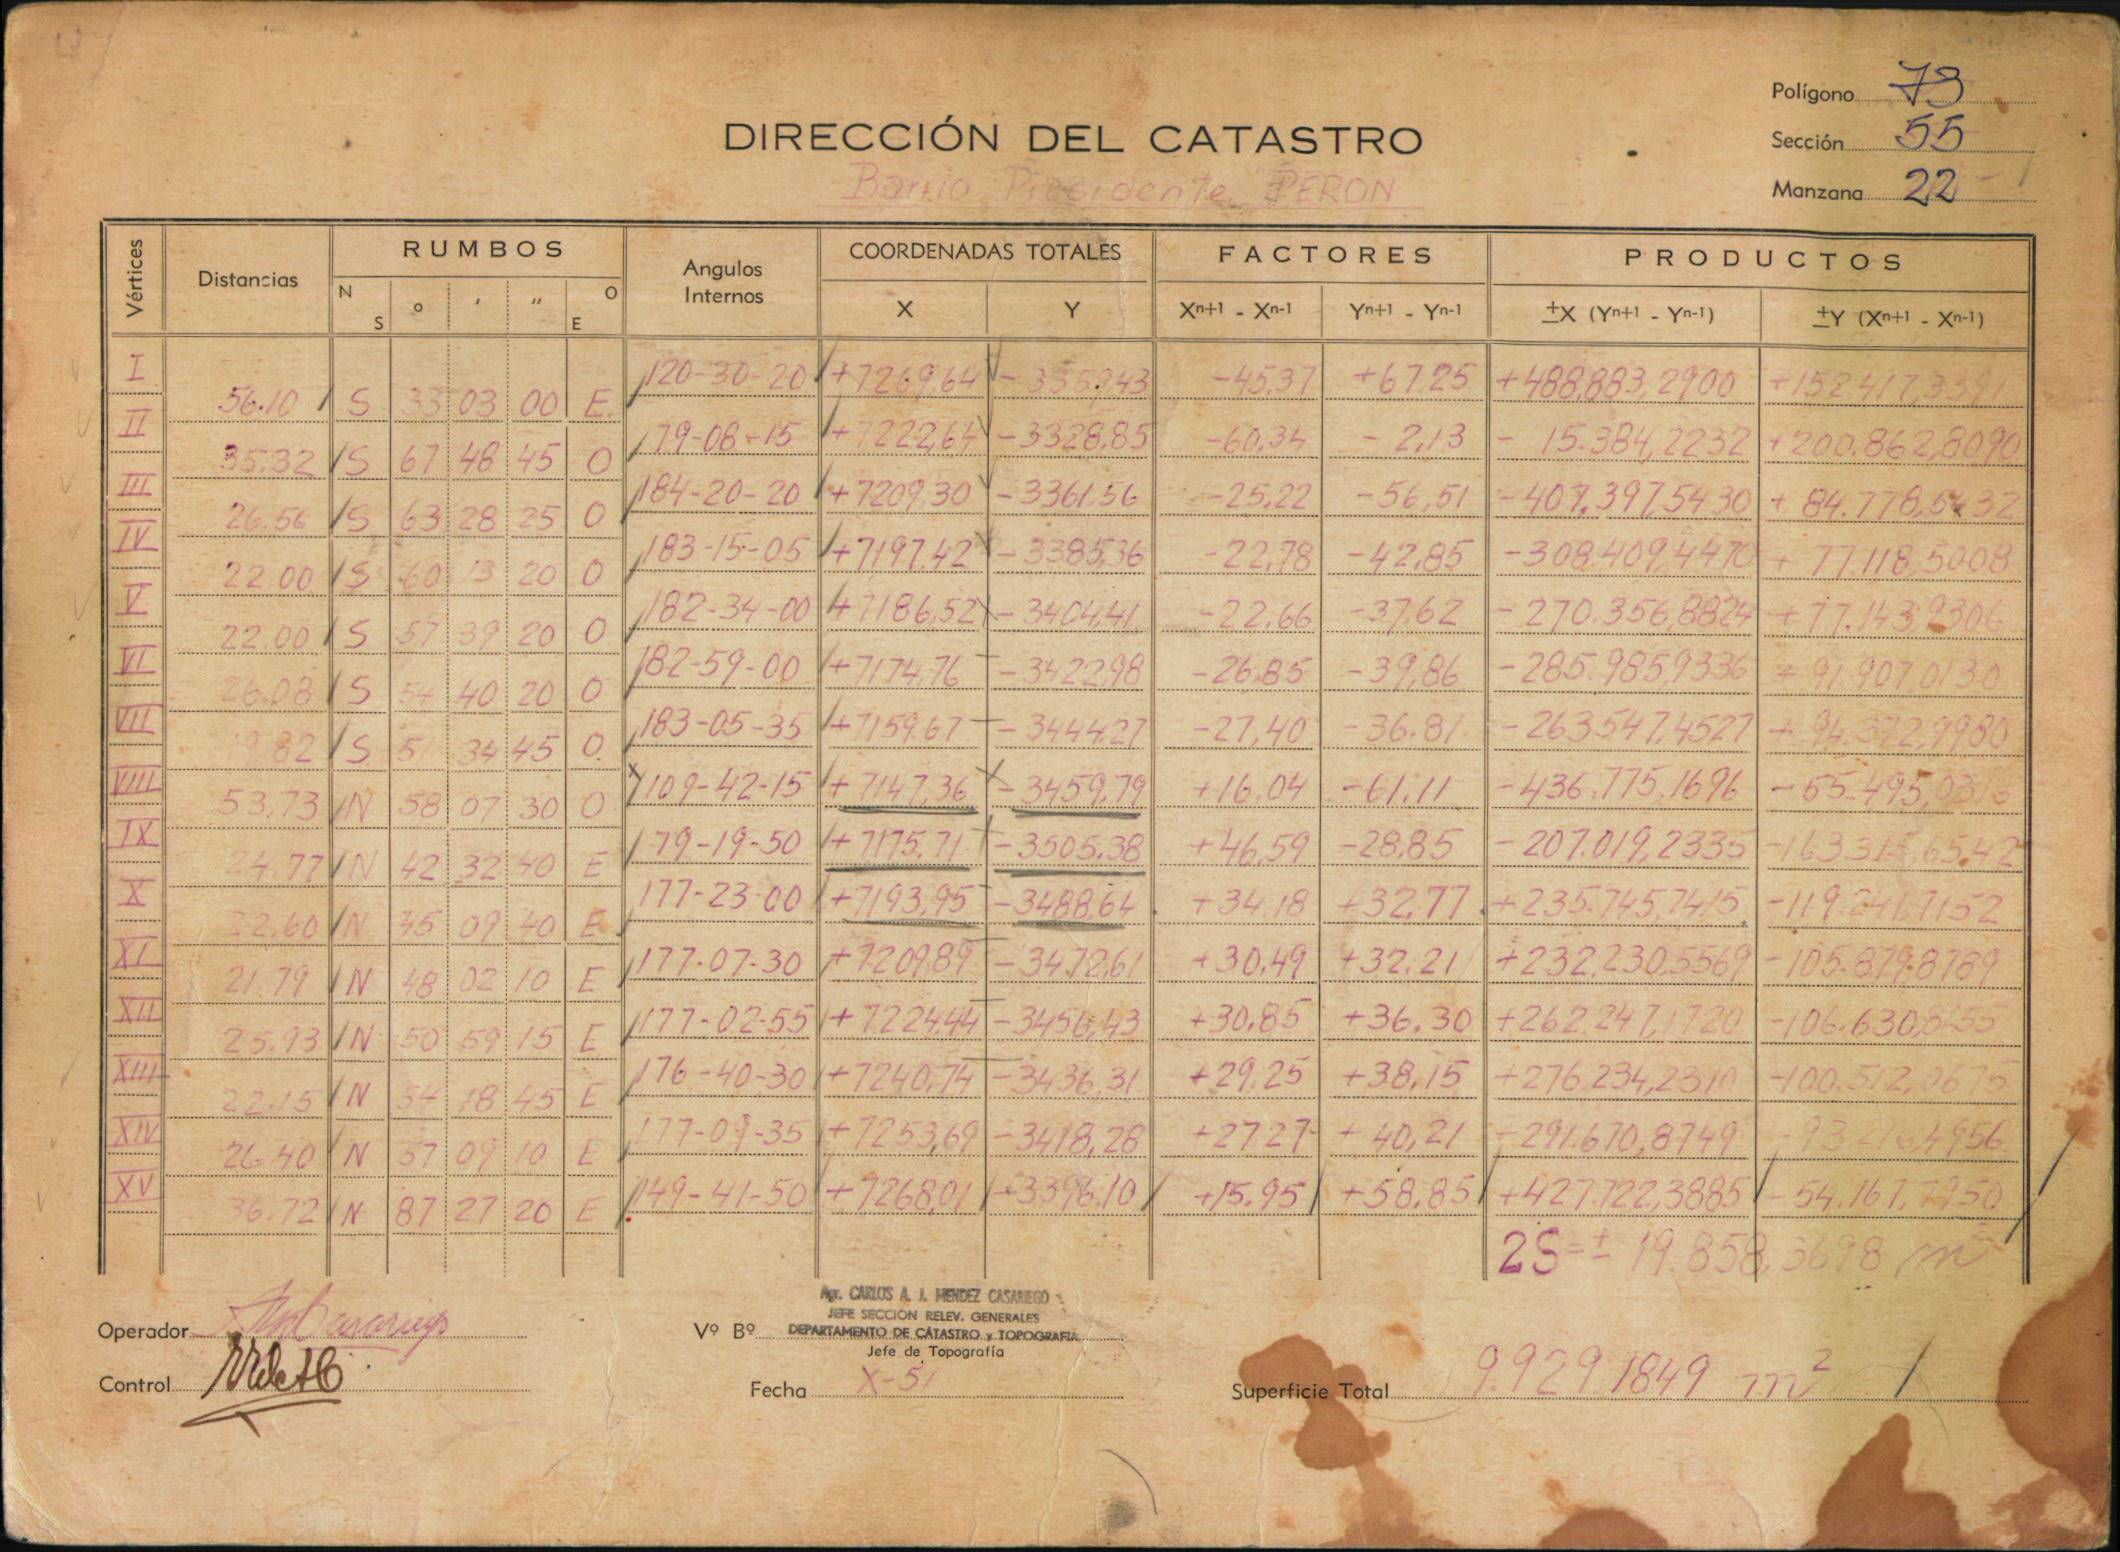 Polígono 73
DIRECCIÓN DEL CATASTRO
Sección 55
Barrio Presidente "PERON"
Manzana 22
Vértices Distancias RUMBOS Angulos Internos COORDENADAS TOTALES FACTORES PRODUCTOS
N S ° ' " O E X Y Xn+1 - Xn-1 Yn+1 - Yn-1 ±X (Yn+1 - Yn-1) ±Y (Xn+1 - Xn-1)
I 120-30-20 +7269,64 -45,37 +67,25 +488.883,2900
56.10 S 33 03 00 E
II 79-08-15 +7222,64 -3328,85 -60,34 -2,13 -15.384,2232 +200.862,8090
35.32 S 67 48 45 O
III 184-20-20 +7209,30 -3361,56 -25,22 -56,51 -407.397,5430 +84.778,5432
26.56 S 63 28 25 O
IV 183-15-05 +7197,42 -3385,36 -22,78 -42,85 -308.409,4470 +77.118,5008
22.00 S 60 13 20 O
V 182-34-00 +7186,52 -3404,41 -22,66 -37,62 -270.356,8824 +77.143,9306
22.00 S 57 39 20 O
VI 182-59-00 +7174,76 -3422,98 -26,85 -39,86 -285.985,9336 +91.907,0130
26.08 S 54 40 20 O
VII 183-05-35 +7159,67 -3444,27 -27,40 -36,81 -263.547,4527 +94.372,9980
S 34 45 O
VIII 109-42-15 +7147,36 -3459,79 +16,04 -61,11 -436.775,1696
53.73 N 58 07 30 O
IX 79-19-50 +7175,71 -3505,38 +46,59 -28,85 -207.019,2335
24.77 N 42 32 40 E
X 177-23-00 +7193,95 -3488,64 +34,18 +32,77 +235.745,7415 -119.241,7152
22.60 N 45 09 40 E
XI 177-07-30 +7209,89 -3472,61 +30,49 +32,21 +232.230,5569 -105.879,8789
21.79 N 48 02 10 E
XII 177-02-55 +7224,44 -3456,43 +30,85 +36,30 +262.247,1720
25.93 N 50 59 15 E
XIII 176-40-30 +7240,74 -3436,31 +29,25 +38,15 +276.234,2310 -100.512,0675
22.15 N 54 18 45 E
XIV 177-09-35 +7253,69 -3418,28 +27,27 +40,21 +291.670,8749
26.40 N 57 09 10 E
XV 149-41-50 +7268,01 -3396,10 +15,95 +58,85 +427.722,3885 -54.167,7950
36.72 N 87 27 20 E
2S = ± 19.858,3698 m²
Agr. CARLOS A. J. MENDEZ CASARIEGO
JEFE SECCION RELEV. GENERALES
Operador Vº Bº DEPARTAMENTO DE CATASTRO y TOPOGRAFIA
Jefe de Topografía
Control Fecha X-51 Superficie Total 9.929,1849 m²